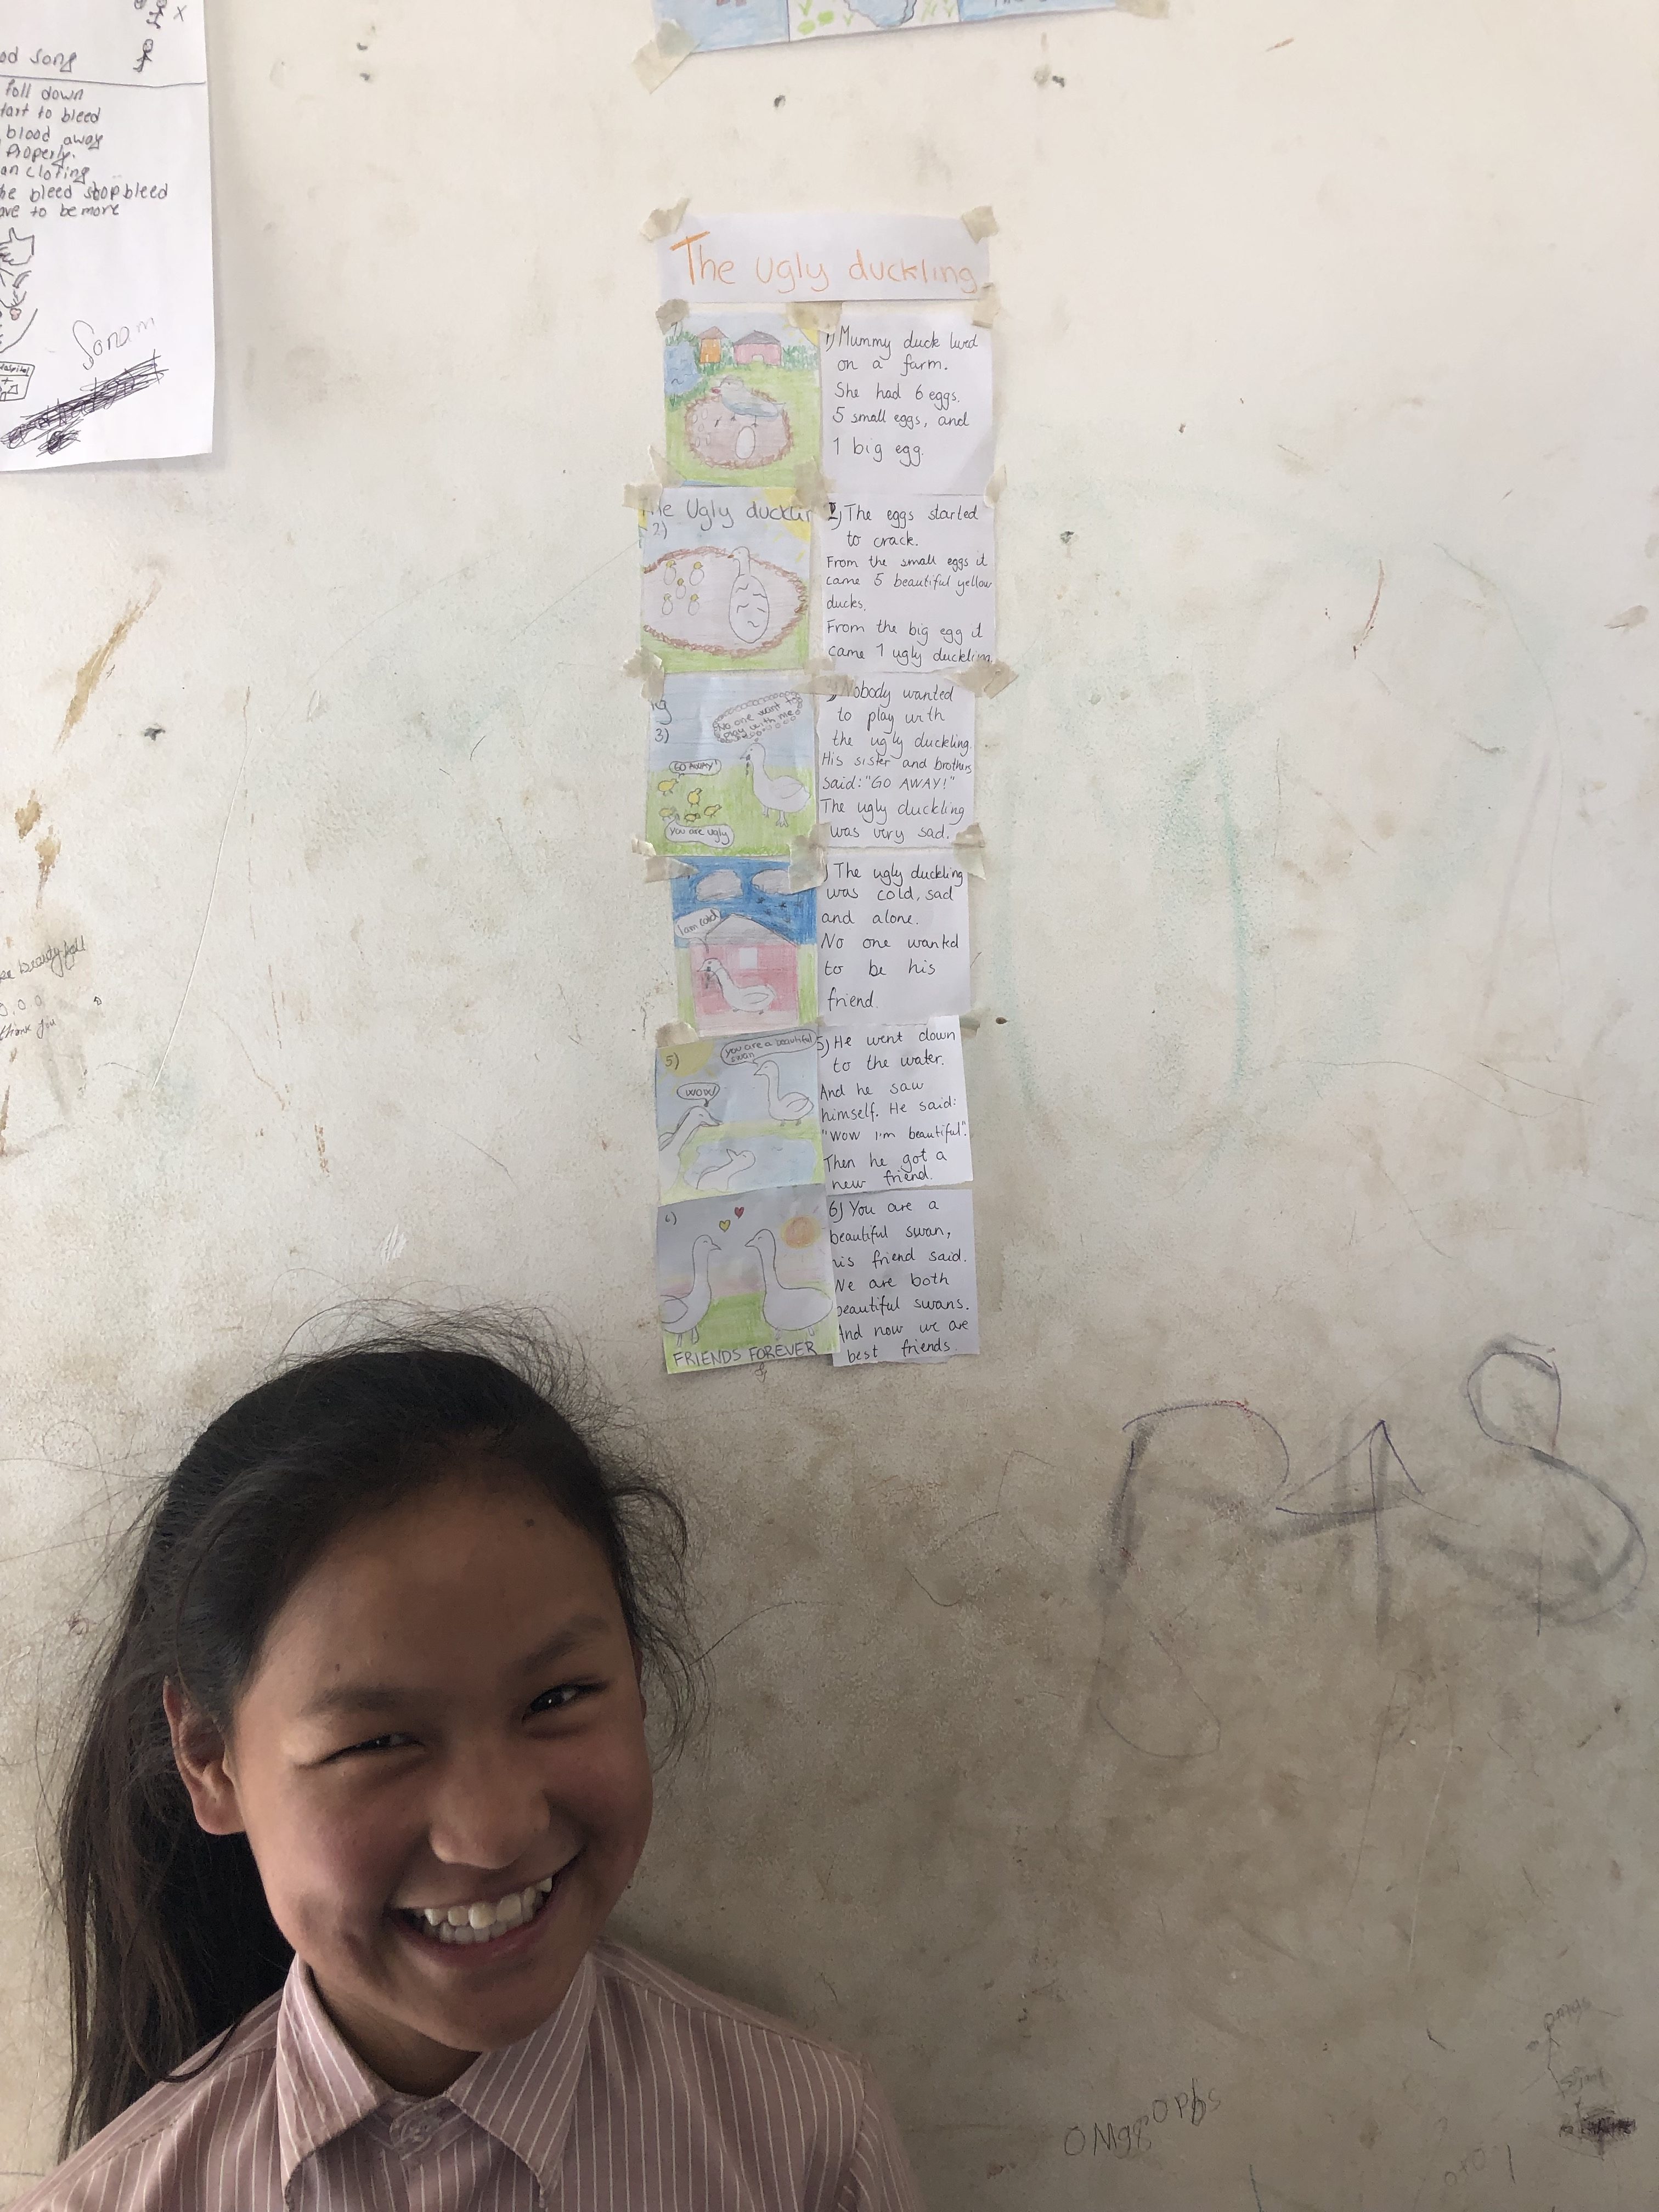 od song
foll down
tart to bleed
blood away
Properly.
an cloting
he bleed stop bleed
ave to be more
Hospital
Sonam
The Ugly duckling
1) Mummy duck lived
on a farm.
She had 6 eggs.
5 small eggs, and
1 big egg.
he Ugly ducklin
2)
2) The eggs started
to crack.
From the small eggs it
came 5 beautiful yellow
ducks.
From the big egg it
came 1 ugly duckling.
ng
3)
No one want to
play with me
GO AWAY!
you are ugly
3) Nobody wanted
to play with
the ugly duckling.
His sister and brothers
said: "GO AWAY!"
The ugly duckling
was very sad.
I am cold
) The ugly duckling
was cold, sad
and alone.
No one wanted
to be his
friend.
5)
you are a beautiful
swan
wow!
5) He went down
to the water.
And he saw
himself. He said:
"Wow I'm beautiful".
Then he got a
new friend.
6)
FRIENDS FOREVER
6) You are a
beautiful swan,
his friend said.
We are both
beautiful swans.
And now we are
best friends.
thank you